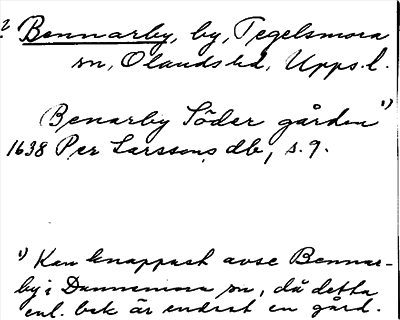 ? Bennarby, by, Tegelsmora
sn, Olands hd, Upps. l.
(Benarby Söder gården ¹)
1638 Per Larssons db, s. 9.
¹) Kan knappast avse Bennar-
by i Dannemora sn, då detta
enl. bek är endast en gård.